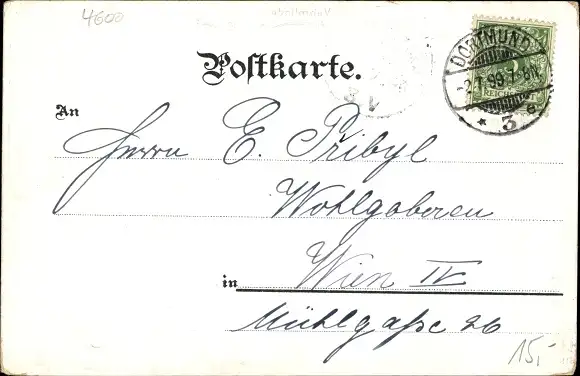 4600
Postkarte.
DORTMUND
2.7.99.7-8N.
* 3 e
REICHSPOST
An
Herrn E. Přibyl
Wohlgeboren
in Wien IV
Mühlgaße 26
15,-